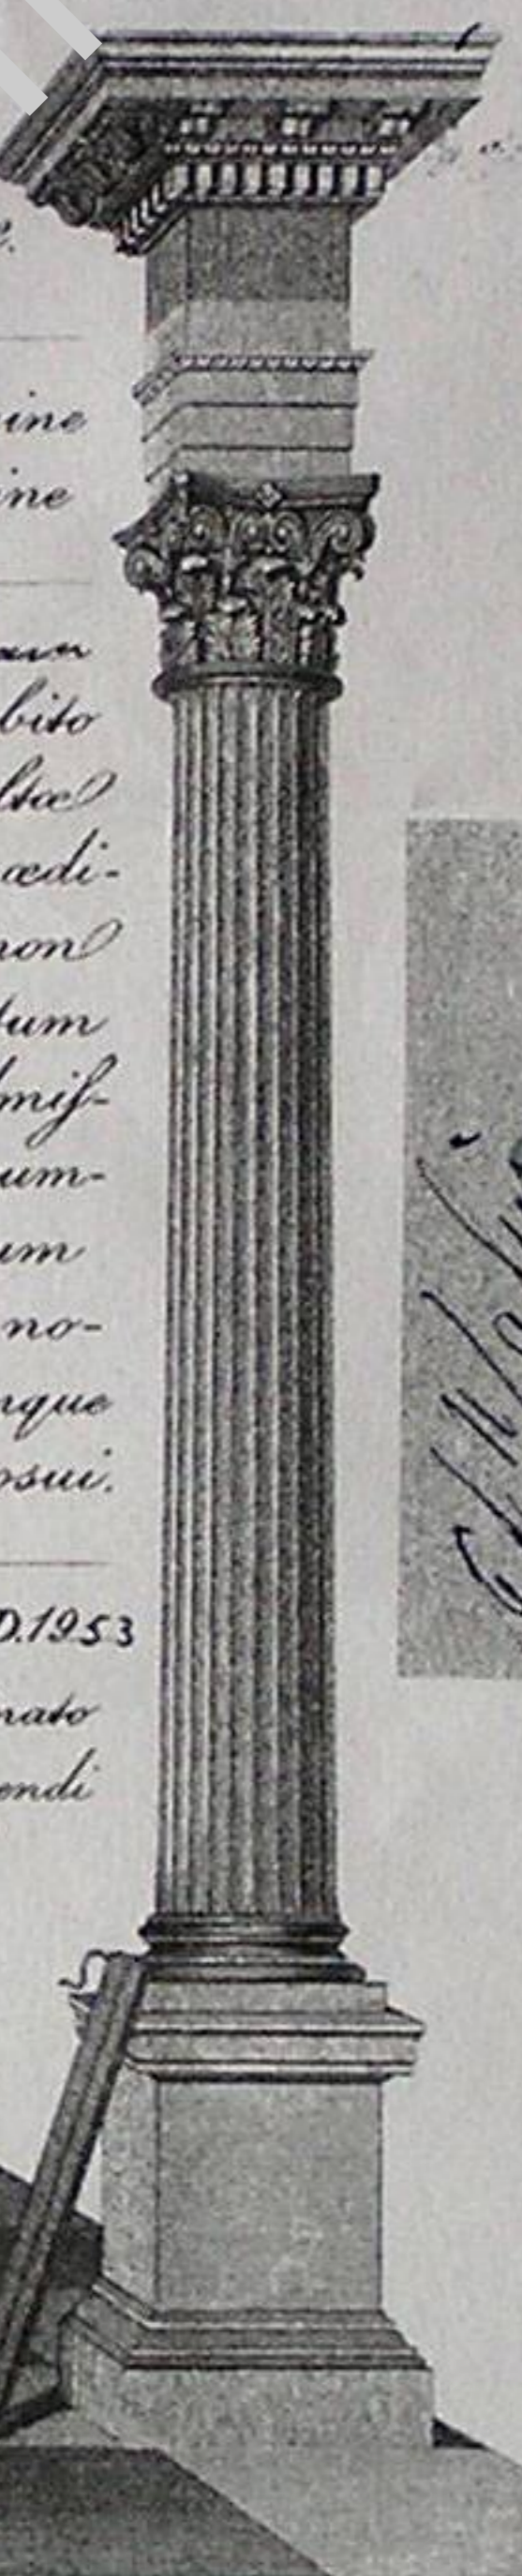 2.
ine
ine
bito
ltæ
ædi-
non
tum
miſ-
um-
um
no-
nque
osui.
D.1953
nato
endi